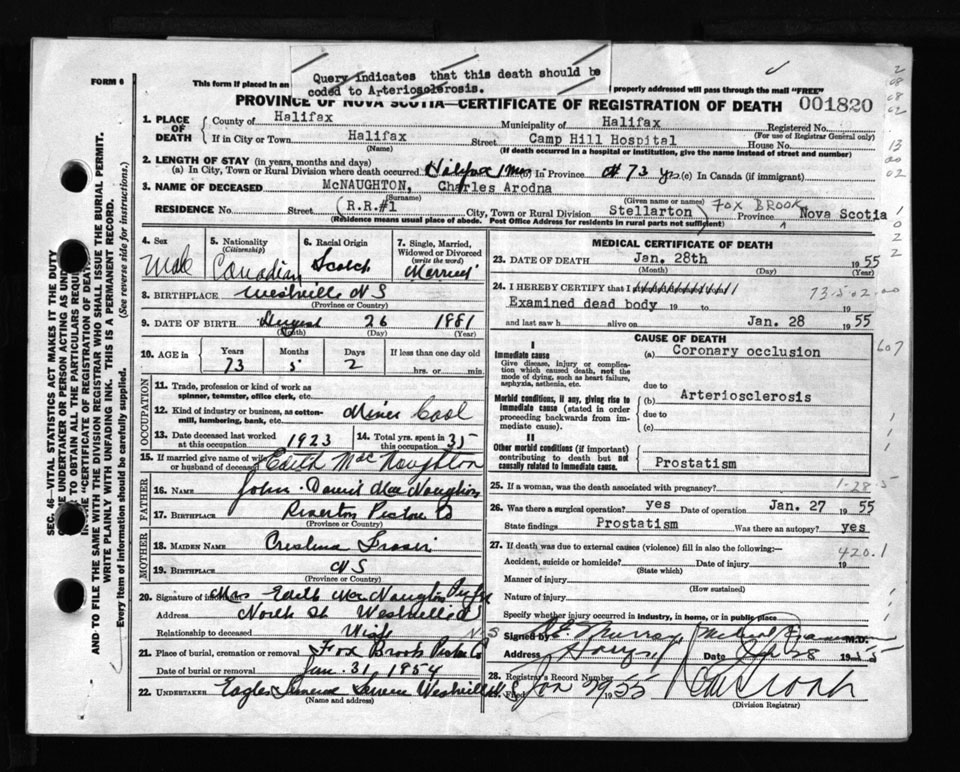 FORM 6
Query indicates that this death should be
coded to Arteriosclerosis.
This form if placed in an
properly addressed will pass through the mail "FREE"
PROVINCE OF NOVA SCOTIA—CERTIFICATE OF REGISTRATION OF DEATH 001820
1. PLACE OF DEATH
County of Halifax Municipality of Halifax Registered No.
(For use of Registrar General only)
If in City or Town Halifax Street Camp Hill Hospital House No.
(Name) (If death occurred in a hospital or institution, give the name instead of street and number)
2. LENGTH OF STAY (in years, months and days)
(a) In City, Town or Rural Division where death occurred Halifax 1 Mo (b) In Province 73 yrs (c) In Canada (if immigrant)
3. NAME OF DECEASED McNAUGHTON, Charles Arodna
(Surname) (Given name or names)
RESIDENCE No. Street (R.R.#1 City, Town or Rural Division Stellarton) Fox BROOK Province Nova Scotia
(Residence means usual place of abode. Post Office Address for residents in rural parts not sufficient)
4. Sex Male
5. Nationality (Citizenship) Canadian
6. Racial Origin Scotch
7. Single, Married, Widowed or Divorced (write the word) Married
8. BIRTHPLACE Westville N S
(Province or Country)
9. DATE OF BIRTH August 26 1881
(Month) (Day) (Year)
10. AGE in Years Months Days If less than one day old
73 5 2 hrs. or min.
OCCUPATION
11. Trade, profession or kind of work as spinner, teamster, office clerk, etc.
12. Kind of industry or business, as cotton-mill, lumbering, bank, etc. Miner Coal
13. Date deceased last worked at this occupation 1923
14. Total yrs. spent in this occupation 35
15. If married give name of wife or husband of deceased Edith MacNaughton
FATHER
16. NAME John Daniel MacNaughton
17. BIRTHPLACE Riverton Pictou Co
(Province or Country)
MOTHER
18. MAIDEN NAME Cristina Fraser
19. BIRTHPLACE N S
(Province or Country)
20. Signature of informant Mrs Edith MacNaughton
Address North St Westville N S
Relationship to deceased Wife
21. Place of burial, cremation or removal Fox Brook Pictou Co
Date of burial or removal Jan. 31 1954
22. UNDERTAKER Eagles Funeral Service Westville N.S
(Name and address)
MEDICAL CERTIFICATE OF DEATH
23. DATE OF DEATH Jan. 28th 1955
(Month) (Day) (Year)
24. I HEREBY CERTIFY that I
73-5-02-00
Examined dead body 19 to 19
and last saw h alive on Jan. 28 1955
CAUSE OF DEATH
607
I
Immediate cause
Give disease, injury or complication which caused death, not the mode of dying, such as heart failure, asphyxia, asthenia, etc.
(a) Coronary occlusion
due to
Morbid conditions, if any, giving rise to immediate cause (stated in order proceeding backwards from immediate cause).
(b) Arteriosclerosis
due to
(c)
II
Other morbid conditions (if important) contributing to death but not causally related to immediate cause.
Prostatism
25. If a woman, was the death associated with pregnancy? 1-28-5
26. Was there surgical operation? yes Date of operation Jan. 27 1955
State findings Prostatism Was there an autopsy? yes
27. If death was due to external causes (violence) fill in also the following:—
420.1
Accident, suicide or homicide? Date of injury 19
(State which)
Manner of injury
(How sustained)
Nature of injury
Specify whether injury occurred in industry, in home, or in public place
Signed by Murray Medical M.D.
Address Date 28 1955
28. Registrar's Record Number
29. Filed Jan 29 1955
(Division Registrar)
SEC. 46—VITAL STATISTICS ACT MAKES IT THE DUTY
UNDERTAKER OR PERSON ACTING AS
TO OBTAIN ALL THE PARTICULARS
"CERTIFICATE OF REGISTRATION OF DEATH"
AND TO FILE THE SAME WITH THE DIVISION REGISTRAR WHO SHALL ISSUE THE BURIAL PERMIT.
WRITE PLAINLY WITH UNFADING INK. THIS IS A PERMANENT RECORD.
Every item of information should be carefully supplied. (See reverse side for instructions.)